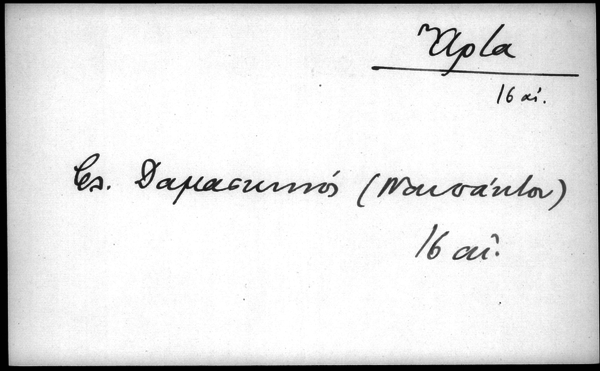 Ἄρτα
16 αἰ.
Δαμασκηνός (Ναυπάκτου)
16 αἰ.